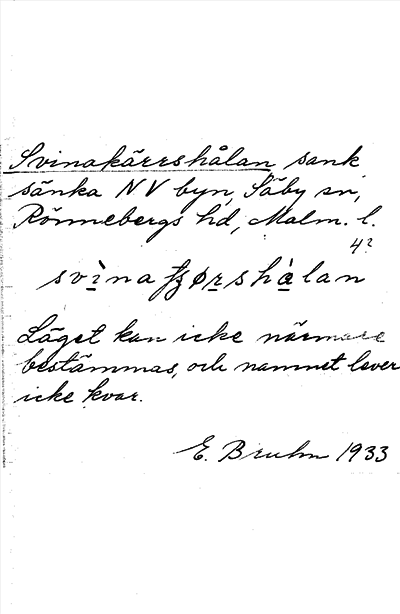 Svinakärrshålan, sank
sänka NV byn, Säby sn,
Rönnebergs hd, Malm. l.
4?
svìna ꞩørshàlan
Läget kan icke närmare
bestämmas, och namnet lever
icke kvar.
E. Bruhn 1933